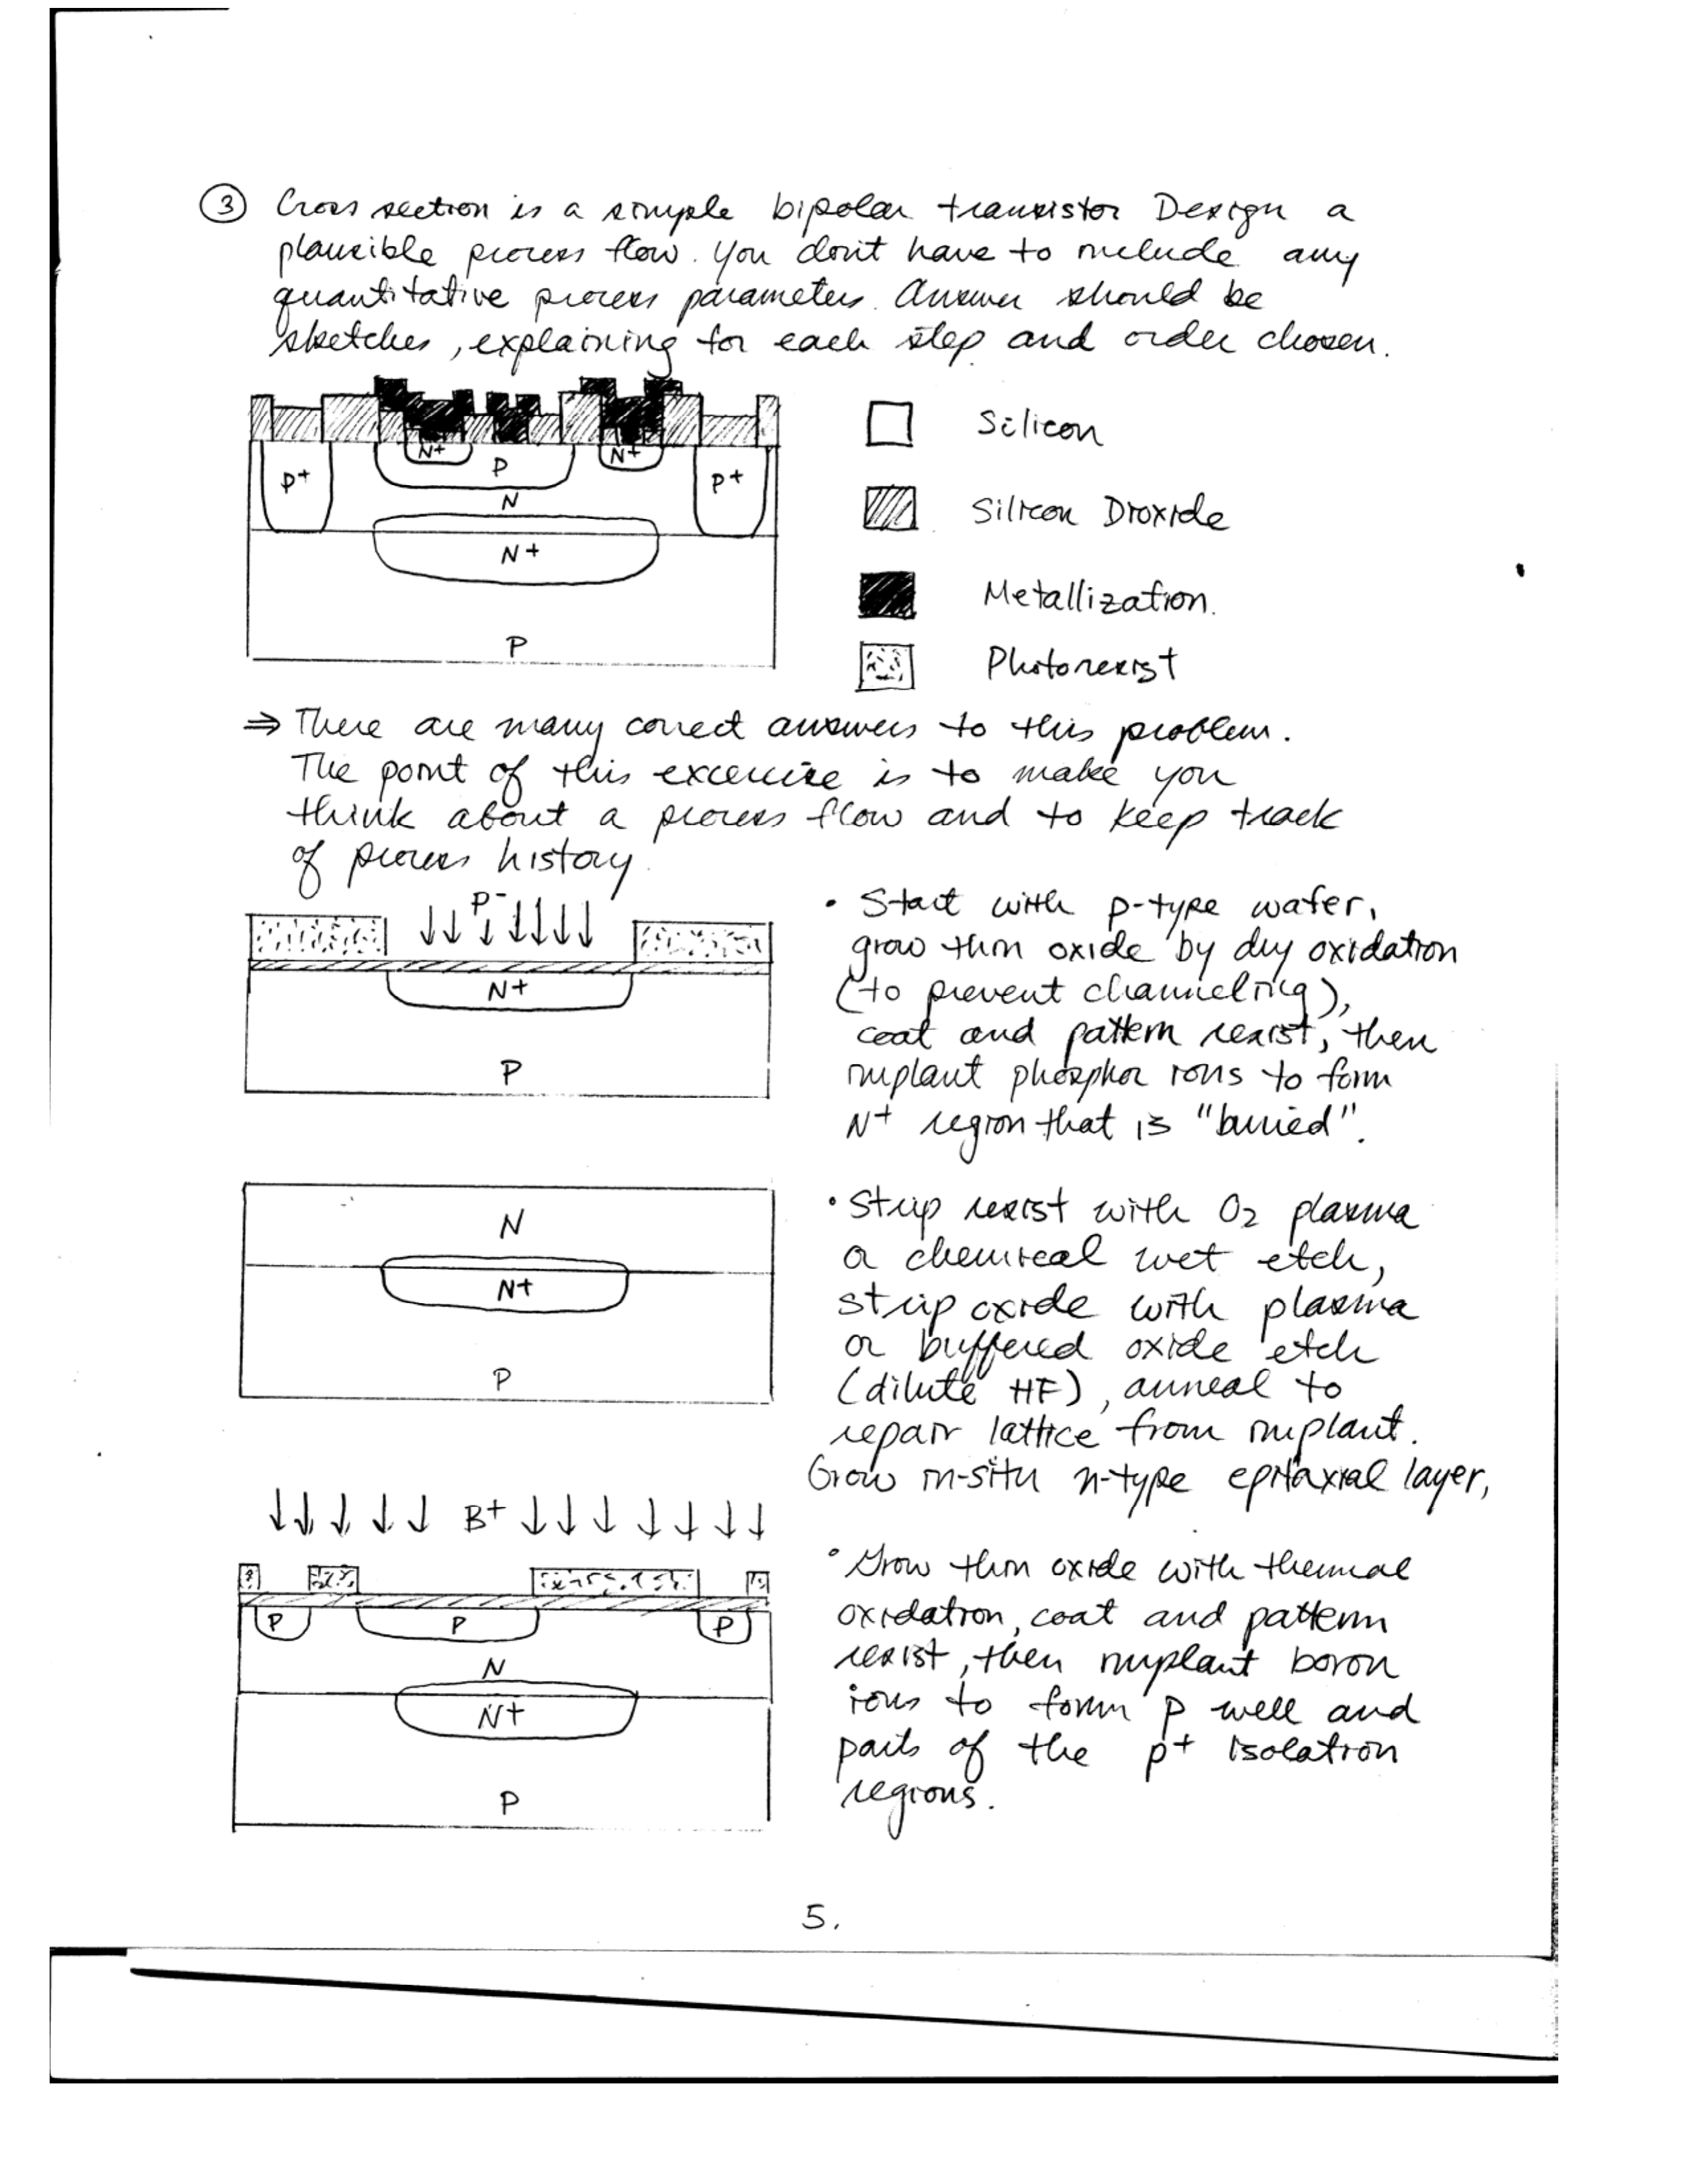 ③ Cross section is a simple bipolar transistor Design a
plausible process flow. You don't have to include any
quantitative process parameters. Answer should be
sketches, explaining for each step and order chosen.
N+
P
N+
P+
P+
N
N+
P
Silicon
Silicon Dioxide
Metallization.
Photoresist
⇒ There are many correct answers to this problem.
The point of this excercise is to make you
think about a process flow and to keep track
of process history.
P-
N+
P
• Start with p-type wafer,
grow thin oxide by dry oxidation
(to prevent channeling),
coat and pattern resist, then
implant phosphor ions to form
N+ region that is "buried".
N
N+
P
• Strip resist with O2 plasma
or chemical wet etch,
strip oxide with plasma
or buffered oxide etch
(dilute HF), anneal to
repair lattice from implant.
Grow in-situ n-type epitaxial layer,
B+
P
P
P
N
N+
P
• Grow thin oxide with thermal
oxidation, coat and pattern
resist, then implant boron
ions to form p well and
parts of the p+ isolation
regions.
5.